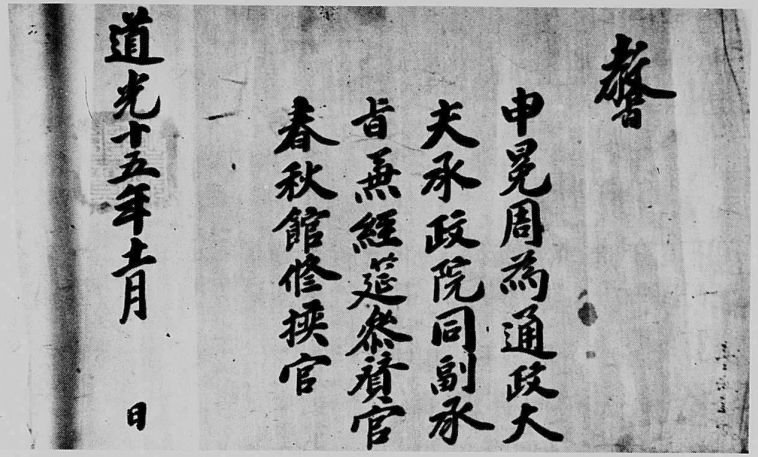 敎旨
申冕周為通政大
夫承政院同副承
旨兼經筵參贊官
春秋館修撰官
道光十五年十二月　日